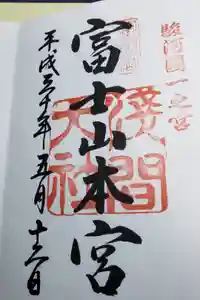 駿河國一之宮
富士山本宮
淺間大社
平成三十年五月十二日